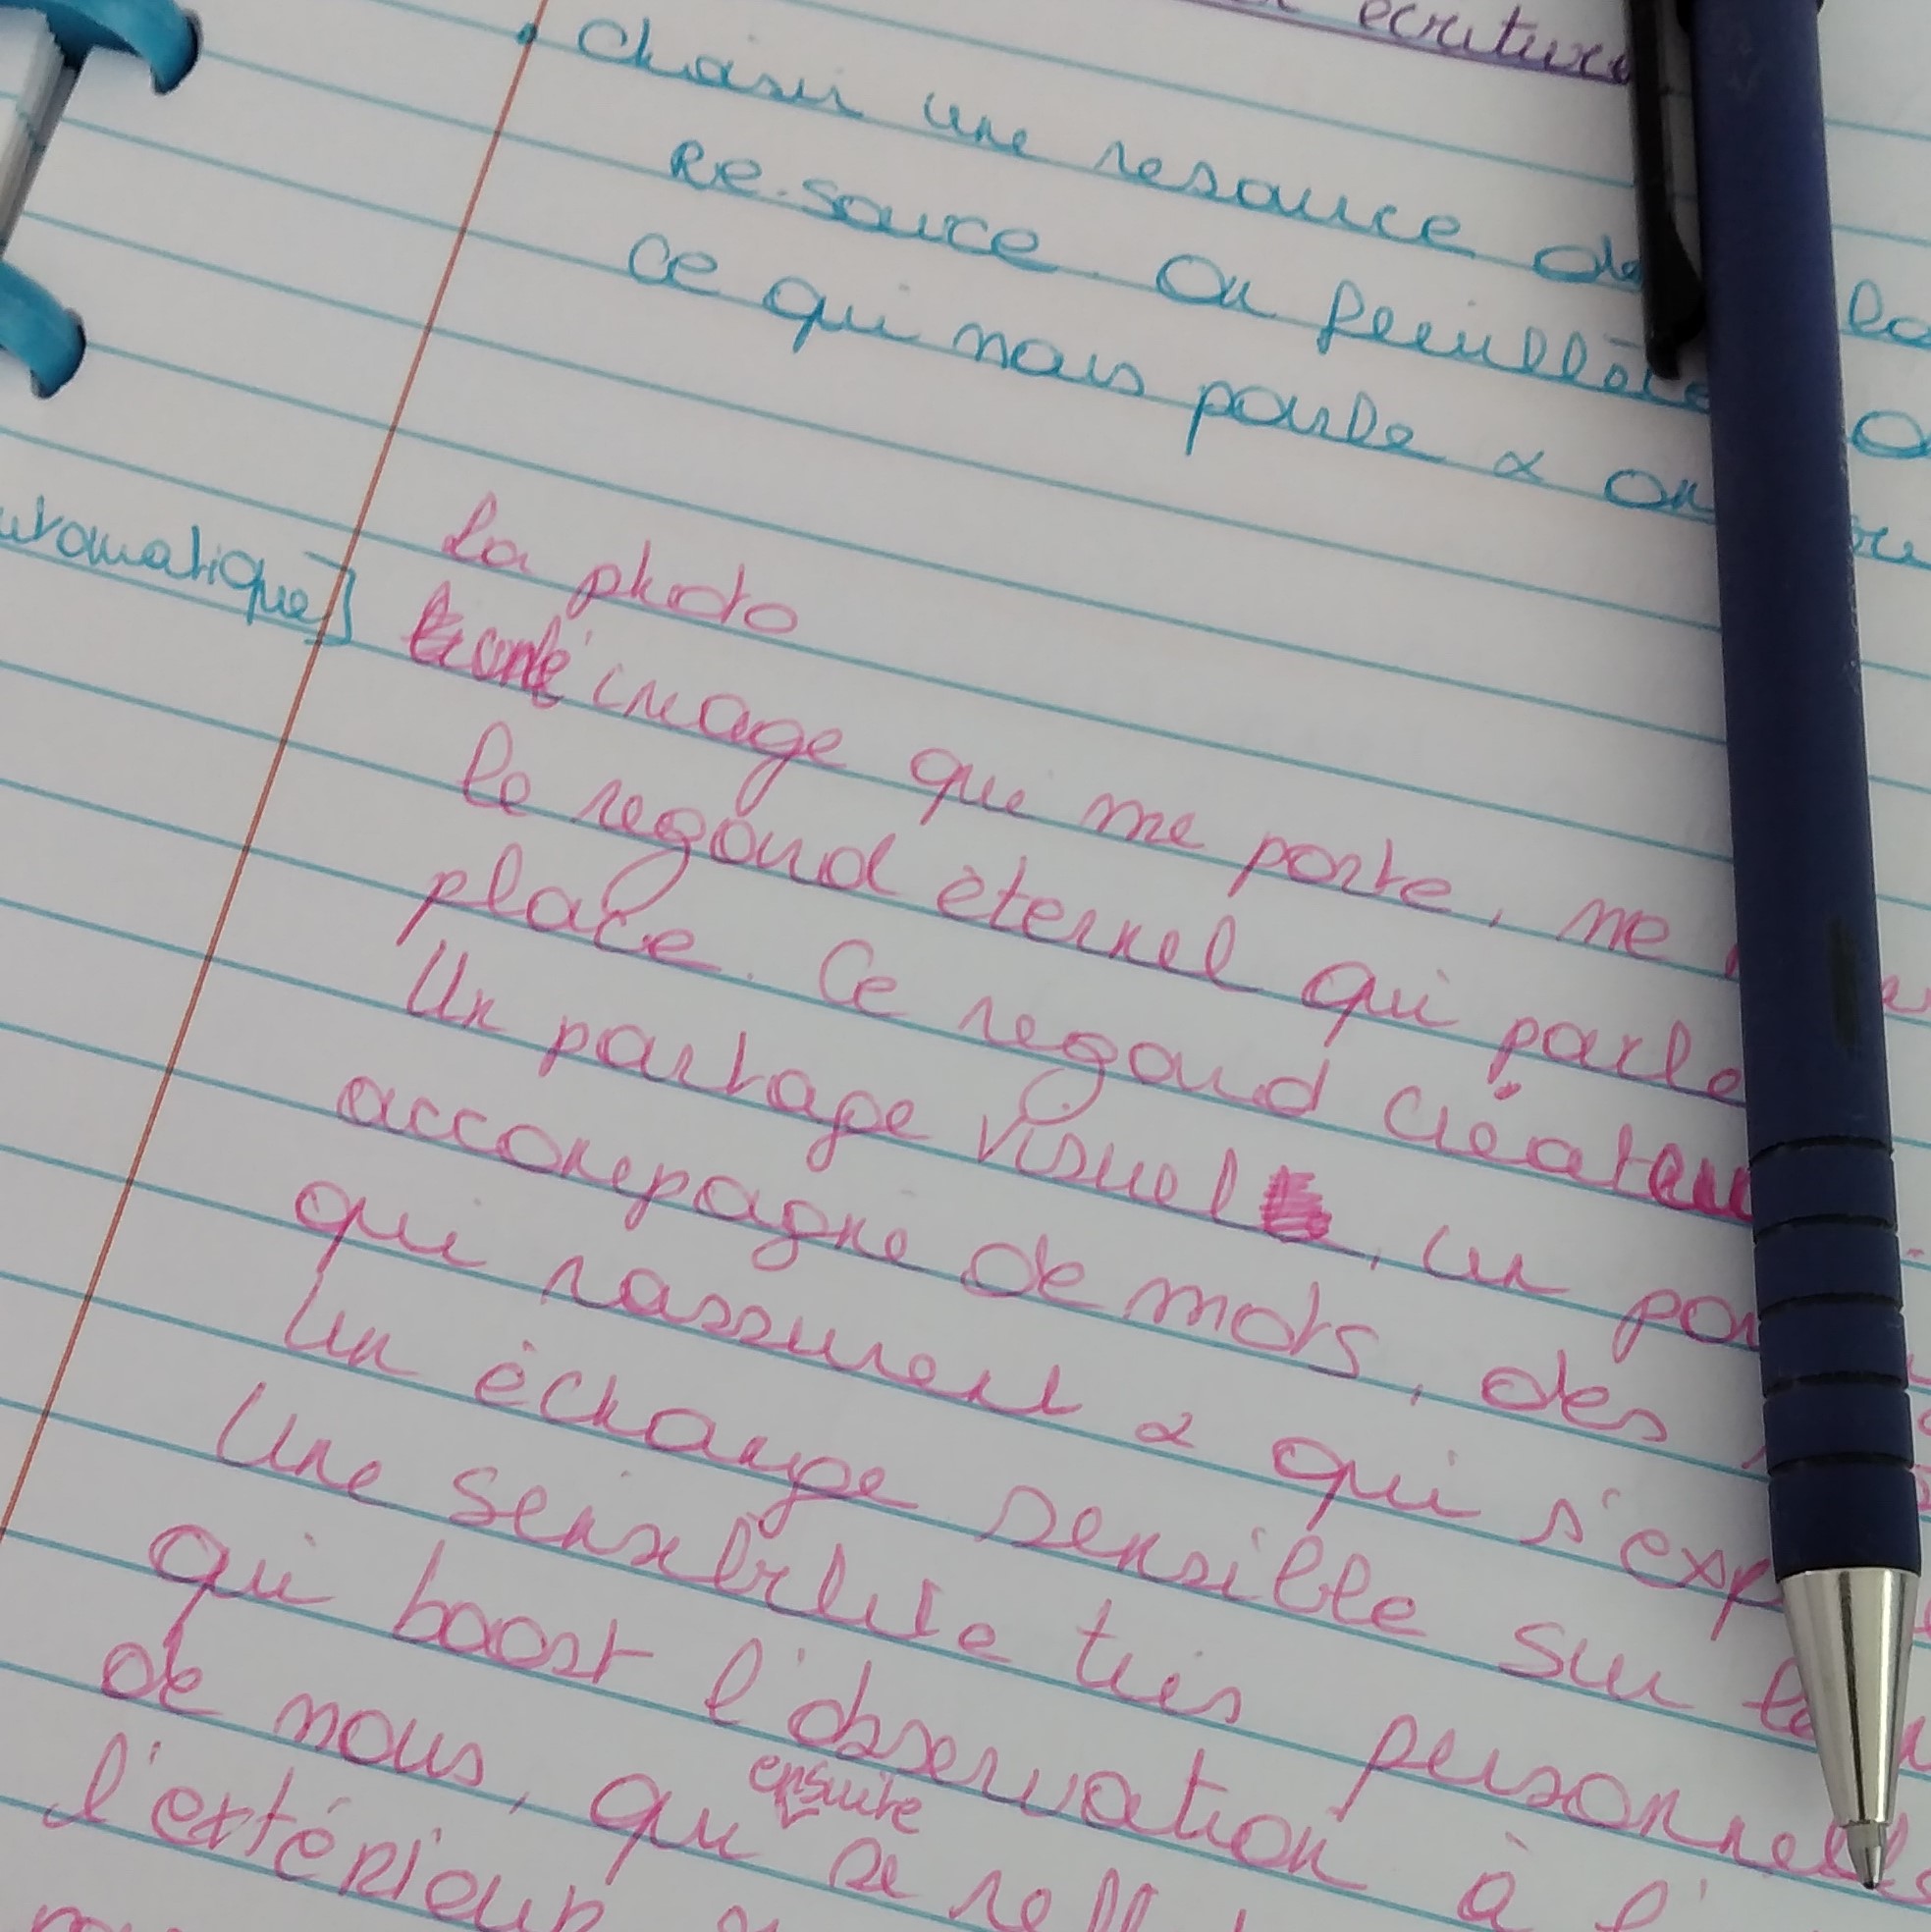 écriture
• Choisir une resource de la
Re.source. On feuillète
ce qui nous parle & on
automatique]
La photo
image que me porte, me
le regard éternel qui parle
place. Ce regard créateur
Un partage visuel, un par
accompagné de mots, des
qui rassurent & qui s'exp
Un échange sensible sur la
Une sensibilité très personnelle
qui boost l'observation à l'
ensuite
de nous, qui se refl
l'extérieur